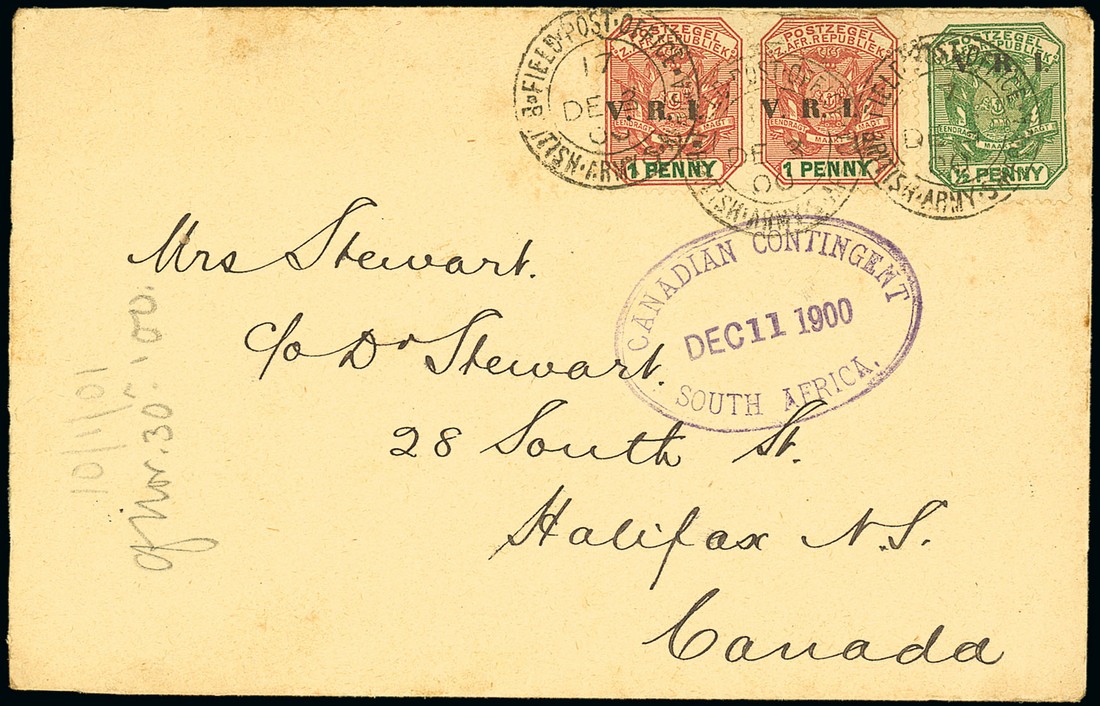 POSTZEGEL
Z. AFR. REPUBLIEK
V. R. I.
EENDRAGT MAAKT MAGT
1 PENNY
POSTZEGEL
Z. AFR. REPUBLIEK
V. R. I.
EENDRAGT MAAKT MAGT
1 PENNY
POSTZEGEL
REPUBLIEK
V. R. I.
EENDRAGT MAAKT MAGT
½ PENNY
FIELD·POST·OFFICE
17
DE
00
ITISH·ARMY
DE
00
ISH·ARMY
DE
ISH·ARMY·S
CANADIAN CONTINGENT
DEC 11 1900
SOUTH AFRICA.
Mrs Stewart.
c/o Dr Stewart.
28 South St.
Halifax N.S.
Canada
10/1/01
Nov. 30 '00.